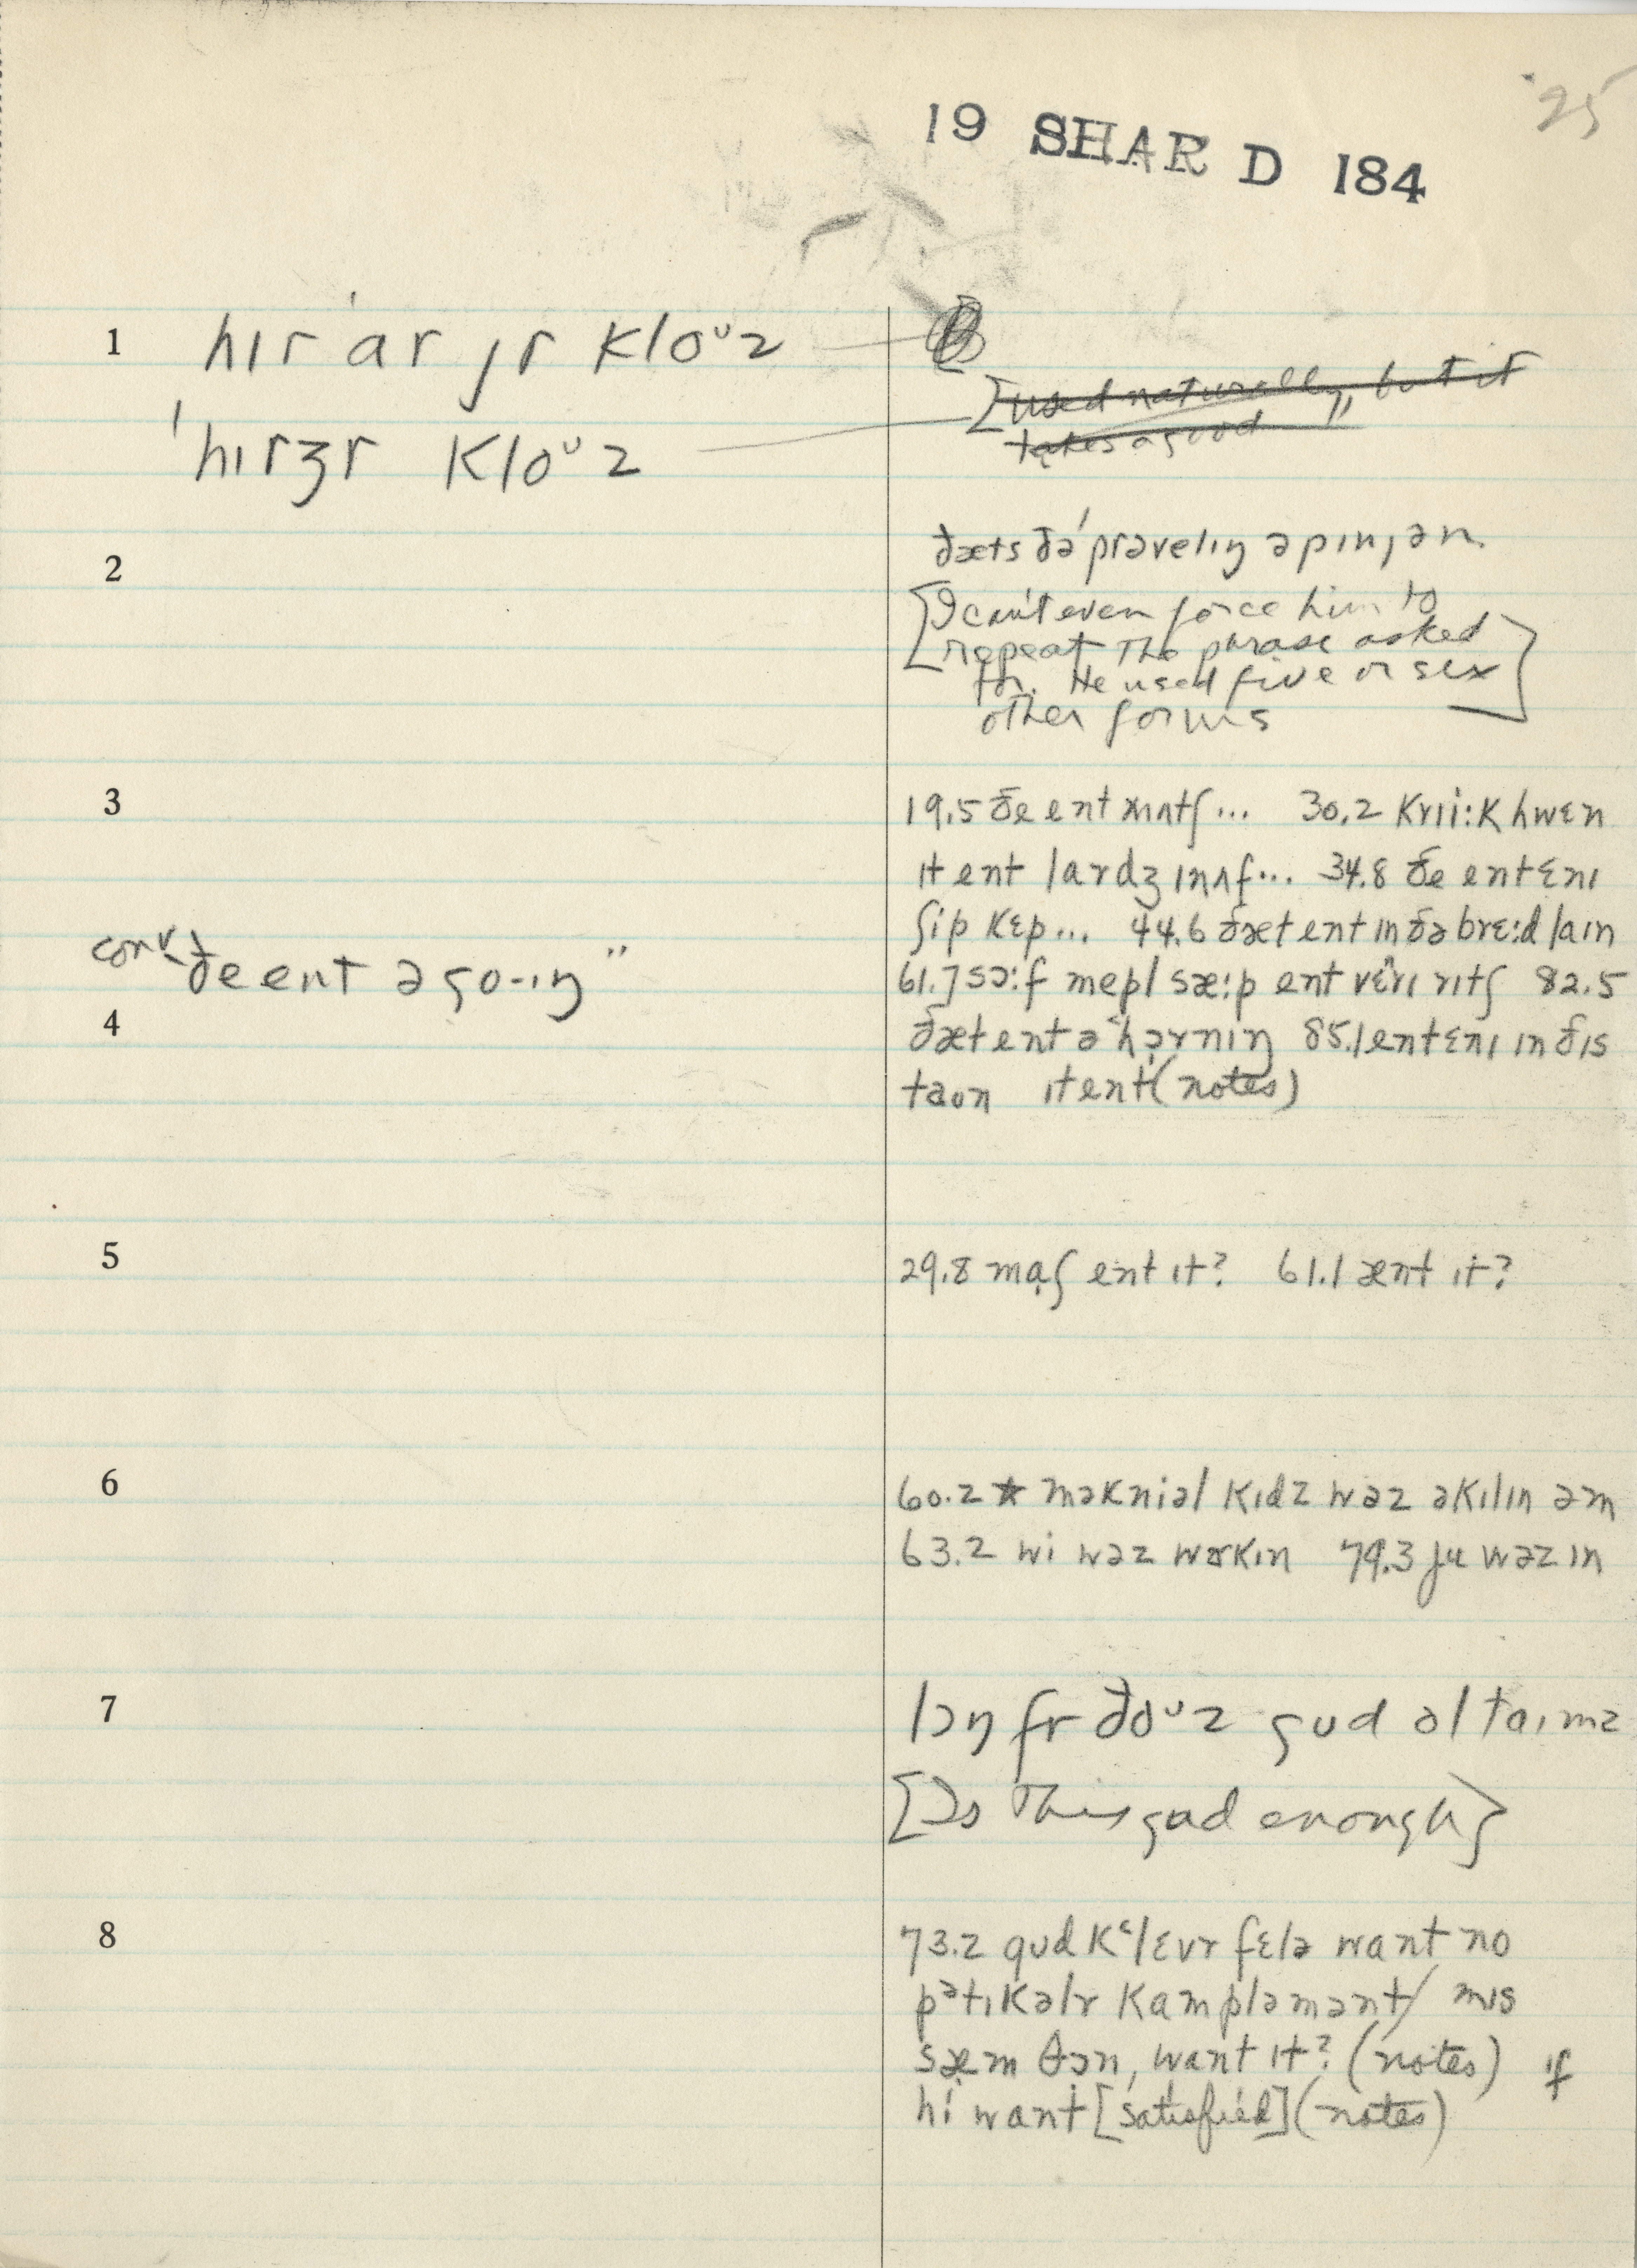 25
19 SHAR D 184
1 hɪr ˈar jr kloᶷz
[used naturally, but it
takes a good
ˈhɪrzr kloᶷz
2 ðæts ðə ˈprɔvelɪŋ əpɪnjən.
[I can't even force him to
repeat the phrase asked
for. He used five or six
other forms]
3 19.5 ðe ent mʌtʃ... 30.2 krii:k hwɛn
ɪt ent lardʒ ɪnʌf... 34.8 ðe ent ɛnɪ
ʃip kɛp... 44.6 ðæt ent ɪn ðə brɛ:d laɪn
conv. ðe ent ə go-ɪŋ"
61.7 sɔ:f mepl sæ:p ent vɛrɪ rɪtʃ 82.5
4 ðæt ent ə hɔrnɪŋ 85.1 ent ɛnɪ ɪn ðɪs
taʊn ɪt ent (notes)
5 29.8 maɪ ent ɪt? 61.1 ænt ɪt?
6 60.2 * məkniəl kɪdz wəz əkɪlɪn əm
63.2 wi wəz wɝkɪn 79.3 ju wəz ɪn
7 lɔŋ fr ðoᶷz gud ol taɪmz
[Is this gud enough]
8 73.2 gud kᵋlɛvr fɛlə want no
pətɪkəlr kampləmənt/ mɪs
sæm θɔn, want ɪt? (notes) if
hi want [satisfied] (notes)